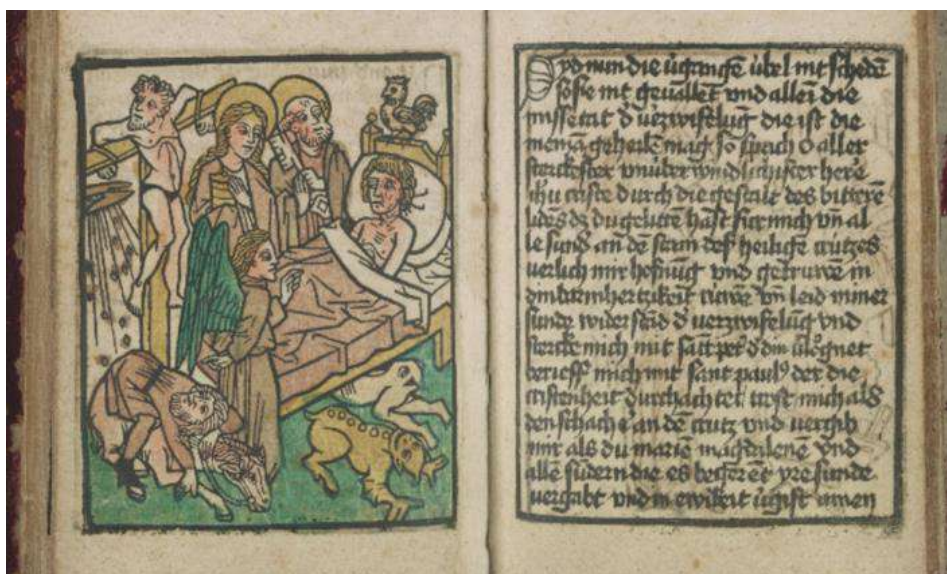 Und nun die vergangen übel nit schedē
so sie nit geuallent vnd allein die
missetat d̓ verzwiflūg die ist die
niemā geheilē mag so sprich O aller
sterckester vnüberwindlichister herre
ih̄u criste durch die gestalt des bitterē
lides dz du gelittē hast für mich vn̄ al
le sund an dē stam deß heiligē crützes
verlich mir hofnūg vnd getruwē in
din barmhertzikeit ruwē vn̄ leid miner
sunde widerstād d̓ verzwiflūg vnd
stercke mich mit sant pet̓ d̓ din v̓lognet
berieff mich mit sant paulꝰ der die
cristenheit durchachtet trost mich als
den schacher an dē crutz vnd vergib
mir als du marien magdalenē vnd
allē sündern die es begerēt yre sunde
vergabt vnd in ewikeit v̓gist amen